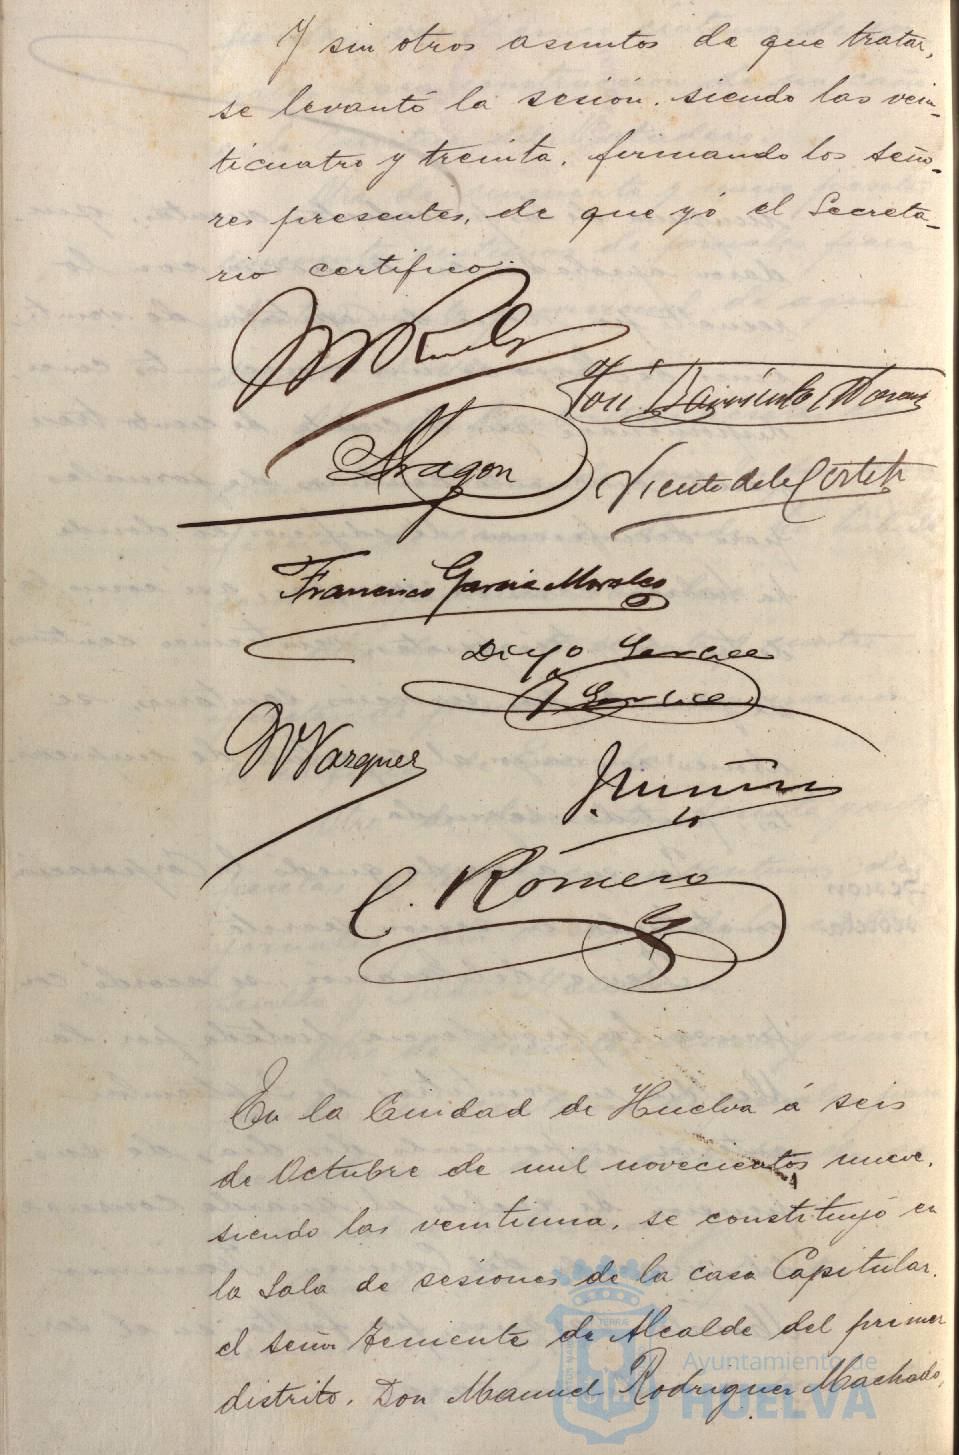 Y sin otros asuntos de que tratar,
se levantó la sesión. siendo las vein-
ticuatro y treinta, firmando los seño-
res presentes, de que yó el Secreta-
rio certifico.
Aragon
Francisco Garcia Morales
Diego
M Vazquez
C. Romero
En la Ciudad de Huelva á seis
de Octubre de mil novecientos nueve,
siendo las veintiuna, se constituyó en
la Sala de sesiones de la casa Capitular,
el señor Teniente de Alcalde del primer
distrito, Don Manuel Rodriguez Machado,
Ayuntamiento de
HUELVA